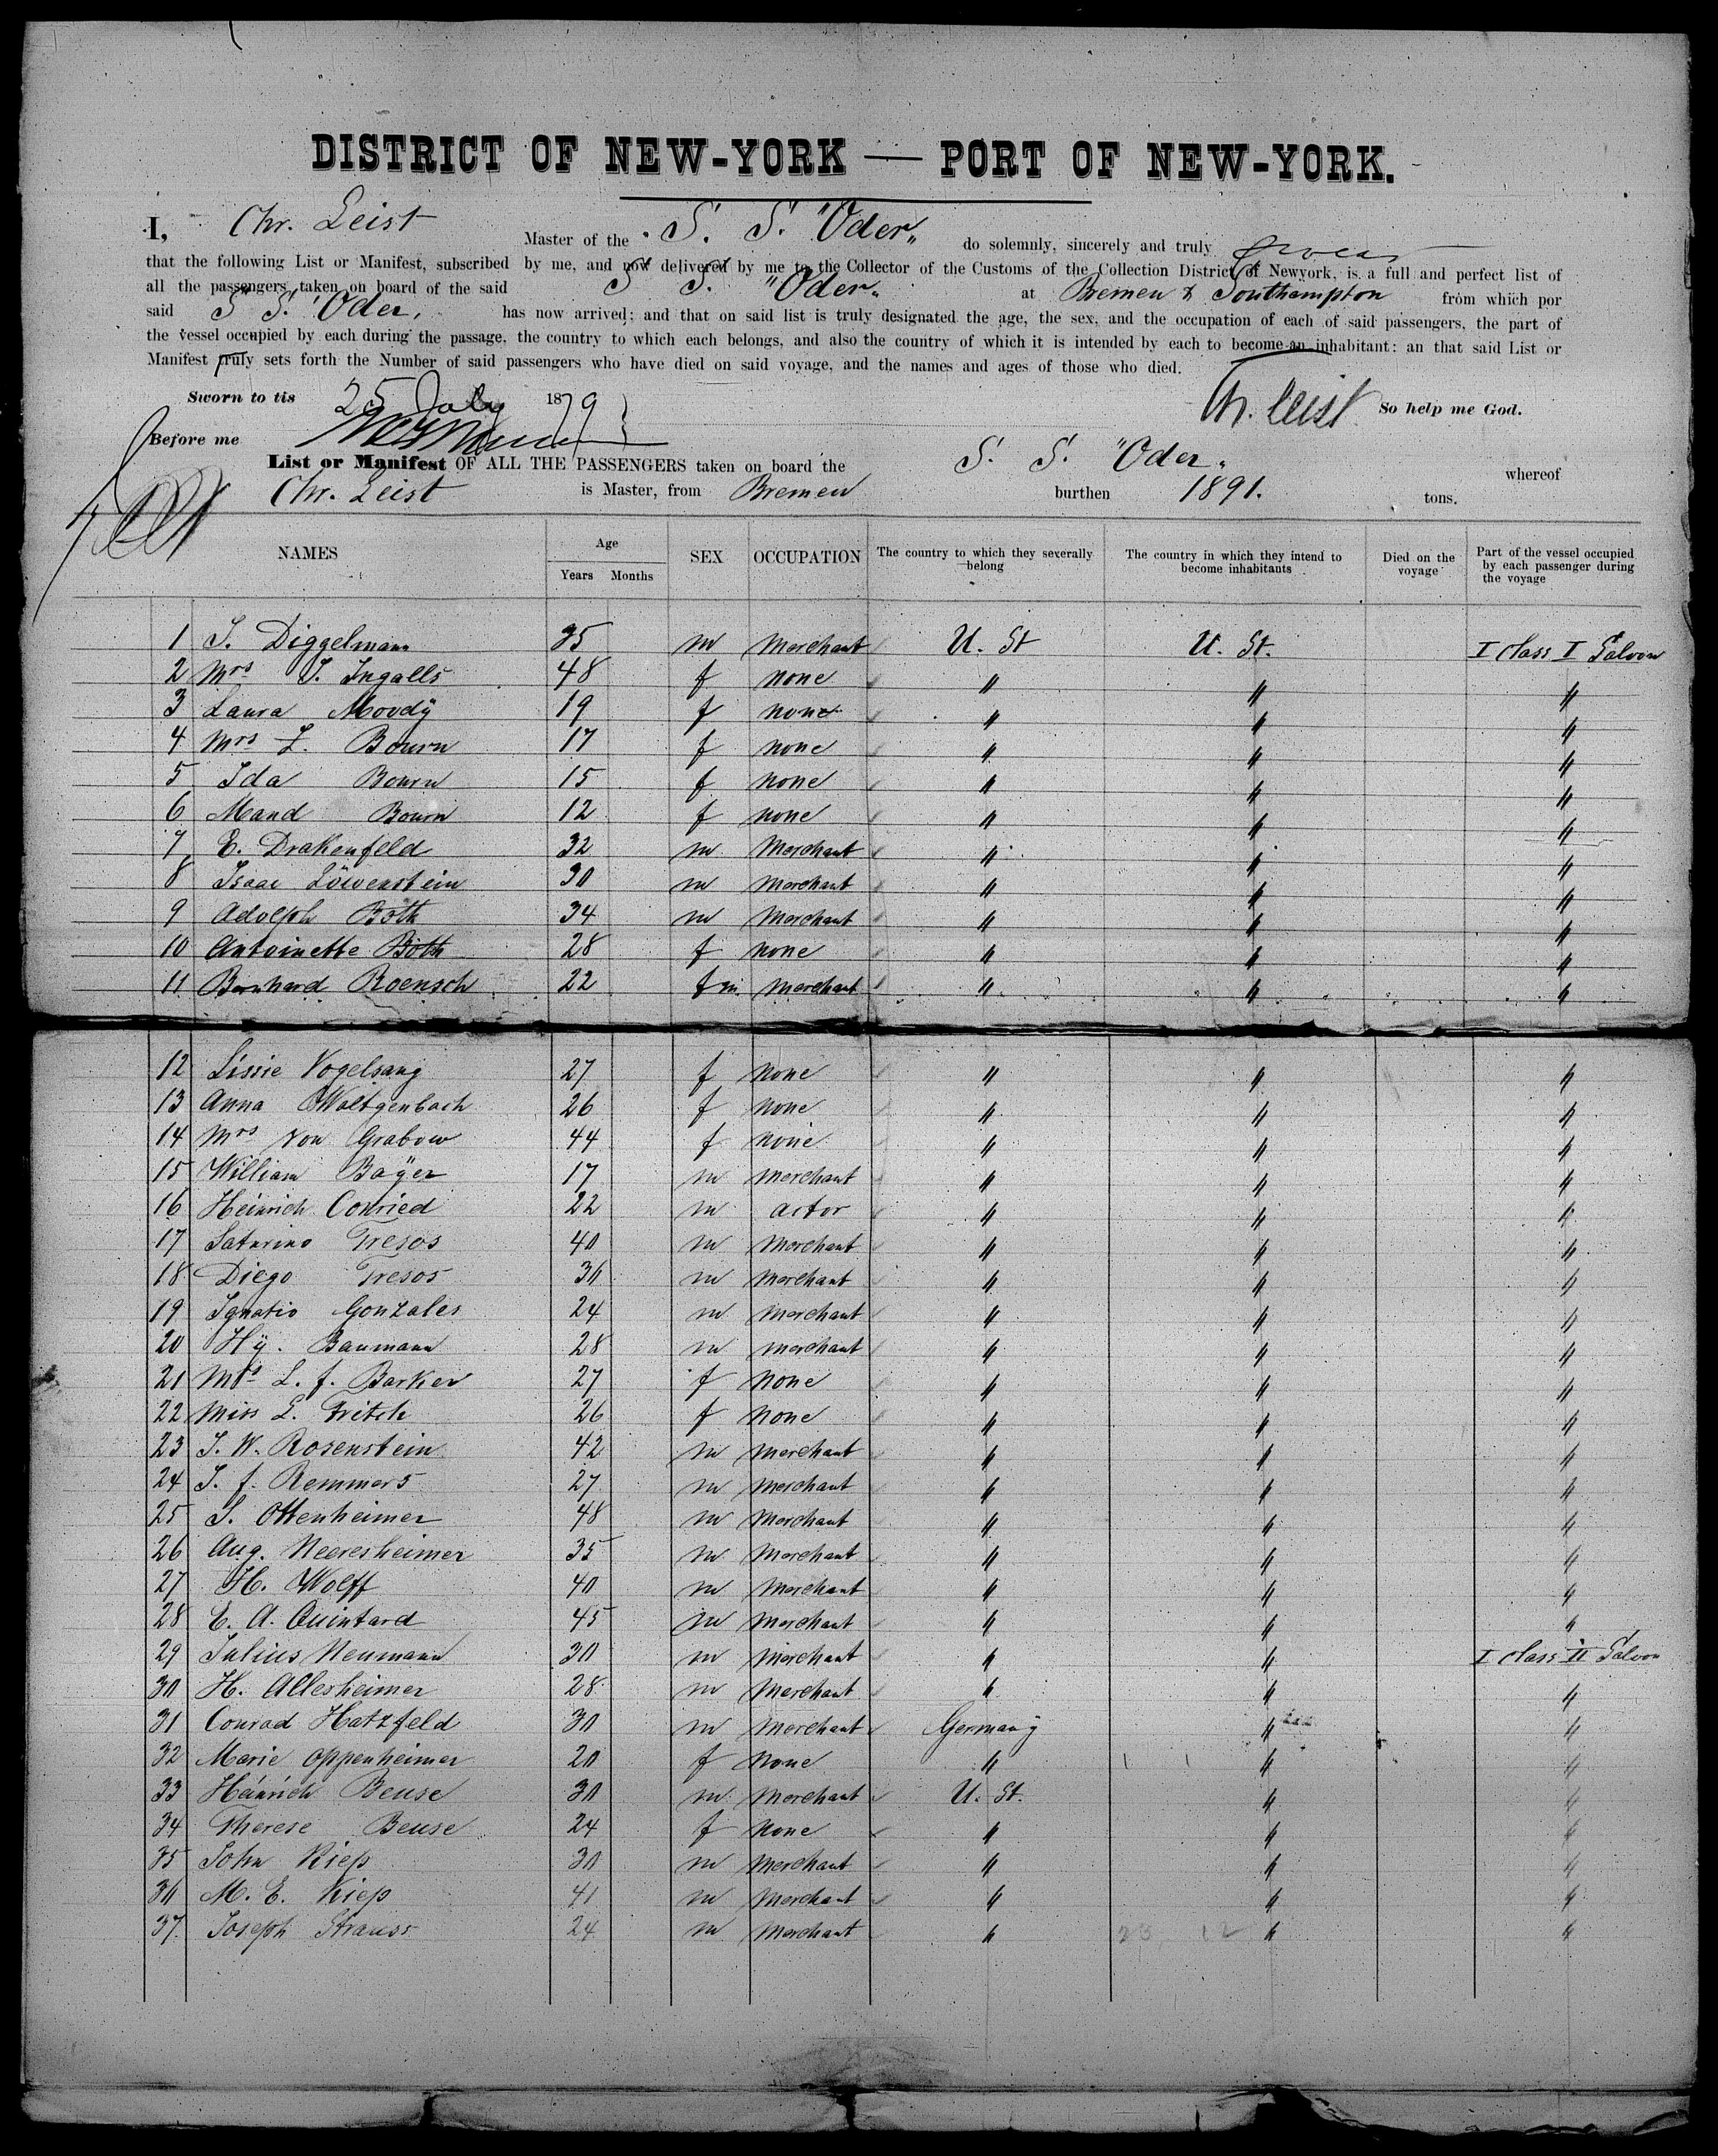 DISTRICT OF NEW-YORK — PORT OF NEW-YORK.
I, Chr. Leist Master of the S. S. "Oder" do solemnly, sincerely and truly swear
that the following List or Manifest, subscribed by me, and now delivered by me to the Collector of the Customs of the Collection District of Newyork, is a full and perfect list of
all the passengers taken on board of the said S S. "Oder" at Bremen & Southampton from which por
said S S. "Oder" has now arrived; and that on said list is truly designated the age, the sex, and the occupation of each of said passengers, the part of
the vessel occupied by each during the passage, the country to which each belongs, and also the country of which it is intended by each to become an inhabitant: an that said List or
Manifest truly sets forth the Number of said passengers who have died on said voyage, and the names and ages of those who died.
Sworn to tis 25 July 1879 Chr. Leist So help me God.
Before me
List or Manifest OF ALL THE PASSENGERS taken on board the S. S. "Oder" whereof
Chr. Leist is Master, from Bremen burthen 1891. tons.
NAMES Age Years Months SEX OCCUPATION The country to which they sexerally belong The country in which they intend to become inhabitants Died on the voyage Part of the vessel occupied by each passenger during the voyage
1 J. Diggelmann 35 m Merchant U. St U. St. I class I Saloon
2 Mrs J. Ingalls 48 f none " " "
3 Laura Moody 19 f none " " "
4 Mrs L. Bourn 17 f none " " "
5 Ida Bourn 15 f none " " "
6 Maud Bourn 12 f none " " "
7 E. Drakenfeld 32 m Merchant " " "
8 Isaac Löwenstein 30 m Merchant " " "
9 Adolph Böth 34 m Merchant " " "
10 Antoinette Böth 28 f none " " "
11 Bernhard Roensch 22 f m. Merchant " " "
12 Lissie Vogelsang 27 f none " " "
13 Anna Woltgenbach 26 f none " " "
14 Mrs von Grabow 44 f none " " "
15 William Bayer 17 m Merchant " " "
16 Heinrich Conried 22 m actor " " "
17 Saturino Tresos 40 m Merchant " " "
18 Diego Tresos 30 m Merchant " " "
19 Ignatio Gonzales 24 m Merchant " " "
20 Hy. Baumann 28 m Merchant " " "
21 Mrs L. f. Barker 27 f none " " "
22 Miss L. Fritch 26 f none " " "
23 J. W. Rosenstein 42 m Merchant " " "
24 J. f. Remmers 27 m Merchant " " "
25 S. Ottenheimer 48 m Merchant " " "
26 Aug. Neeresheimer 35 m Merchant " " "
27 H. Wolff 40 m Merchant " " "
28 E. A. Quintard 45 m Merchant " " "
29 Julius Neumann 30 m Merchant " " I class II Saloon
30 H. Allesheimer 28 m Merchant " " "
31 Conrad Hatzfeld 30 m Merchant Germany " "
32 Marie Oppenheimer 20 f none " " "
33 Heinrich Beuse 30 m Merchant U. St. " "
34 Therese Beuse 24 f none " " "
35 John Kiep 30 m Merchant " " "
36 M. E. Kiep 41 m Merchant " " "
37. Joseph Strauss 24 m Merchant " " "